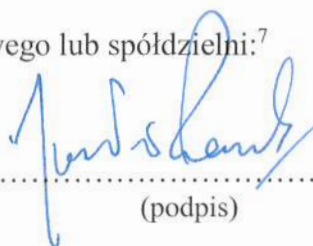 wego lub spółdzielni:⁷
........................................
(podpis)